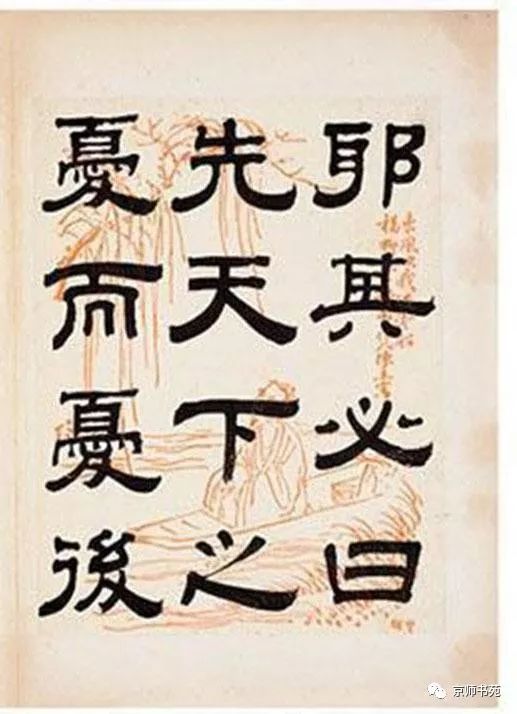 耶其必曰
先天下之
憂而憂後
京师书苑